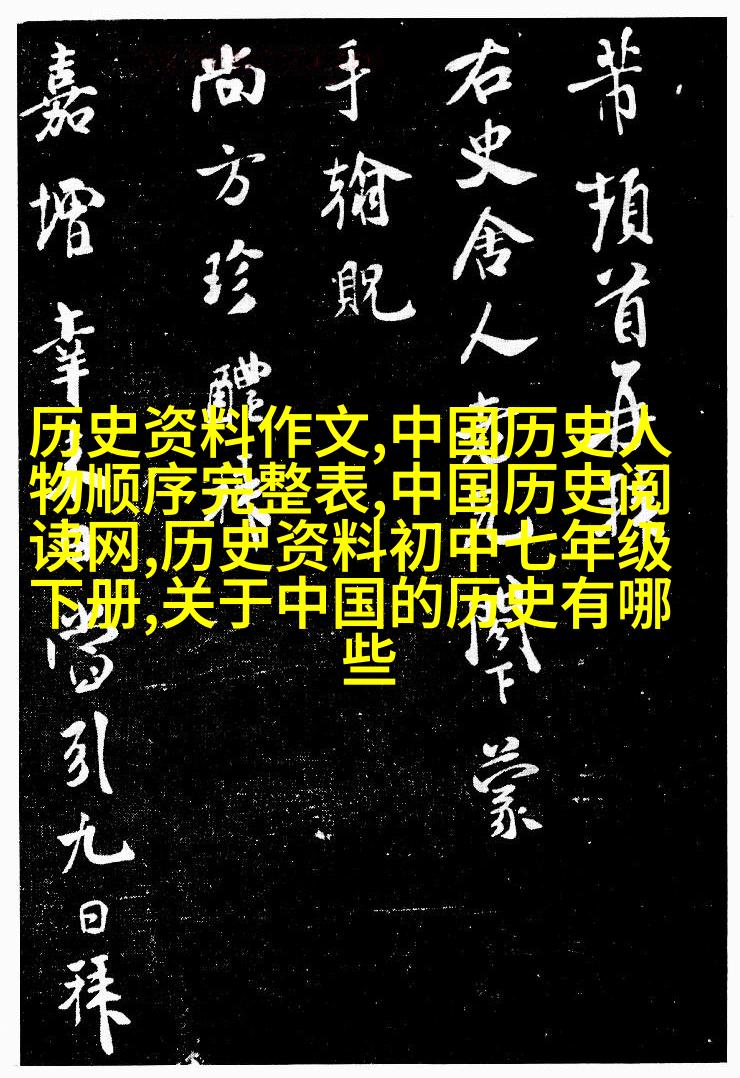 芾頓首再拜
右史舍人閣下蒙
手翰貺
尚方珍醴
嘉增幸嘗引九日拜
历史资料作文,中国历史人
物顺序完整表,中国历史阅
读网,历史资料初中七年级
下册,关于中国的历史有哪
些